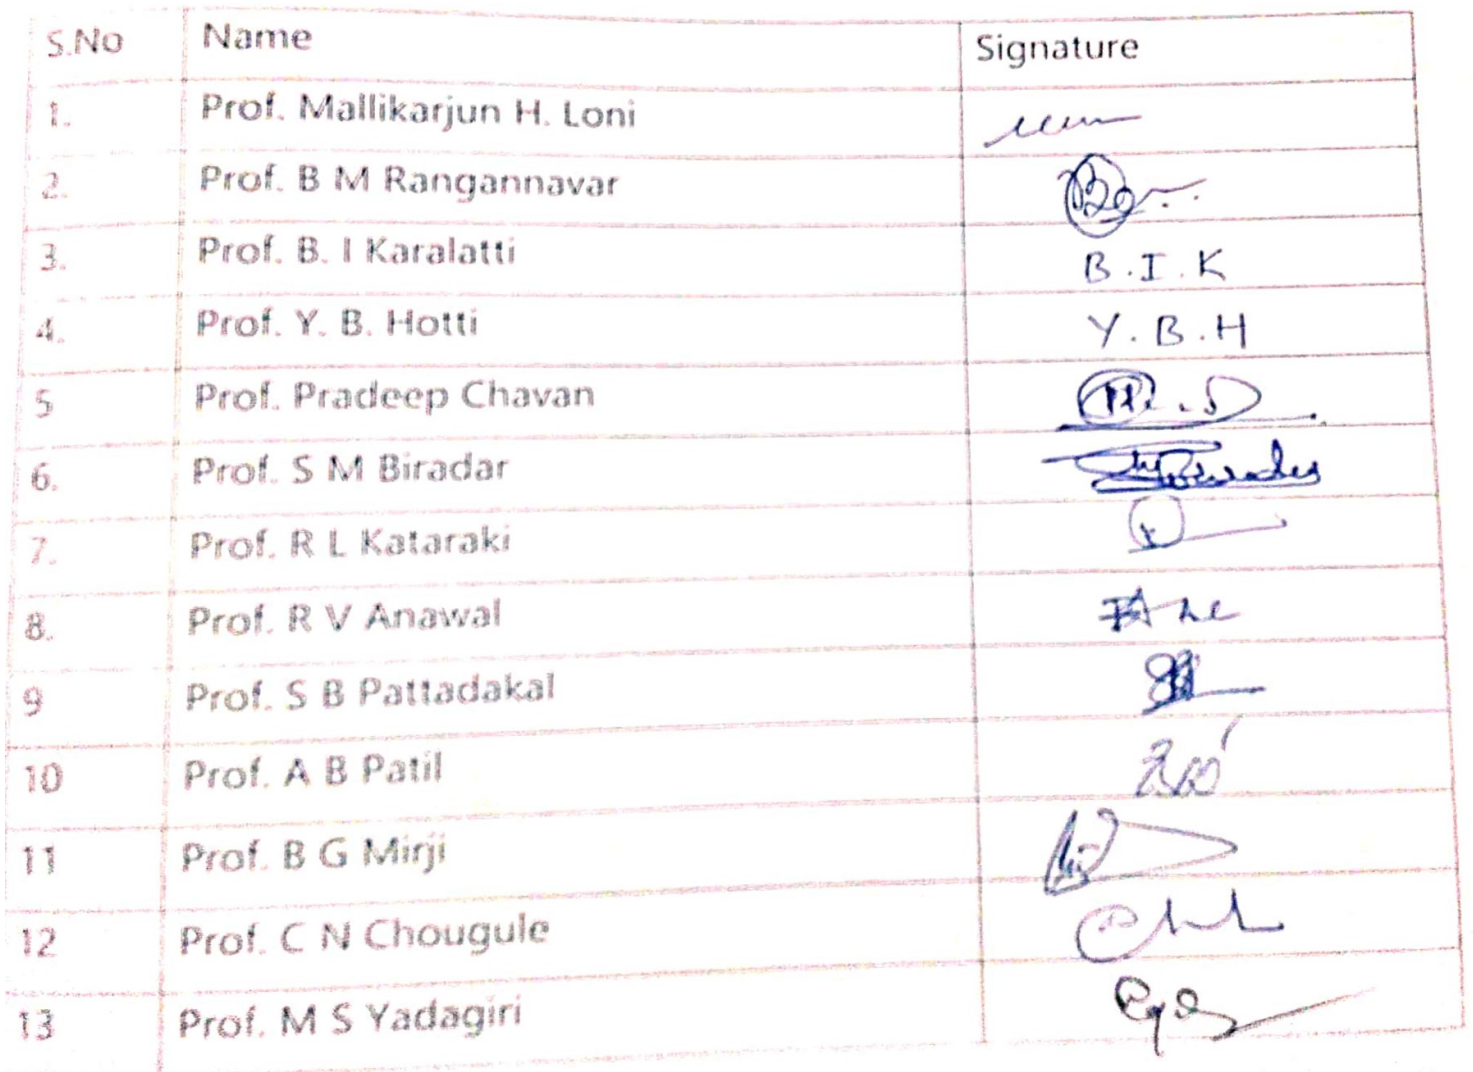 S.No Name Signature
1. Prof. Mallikarjun H. Loni
2. Prof. B M Rangannavar
3. Prof. B. I Karalatti B.I.K
4. Prof. Y. B. Hotti Y.B.H
5 Prof. Pradeep Chavan
6. Prof. S M Biradar
7. Prof. R L Kataraki
8. Prof. R V Anawal
9 Prof. S B Pattadakal
10 Prof. A B Patil
11 Prof. B G Mirji
12 Prof. C N Chougule
13 Prof. M S Yadagiri